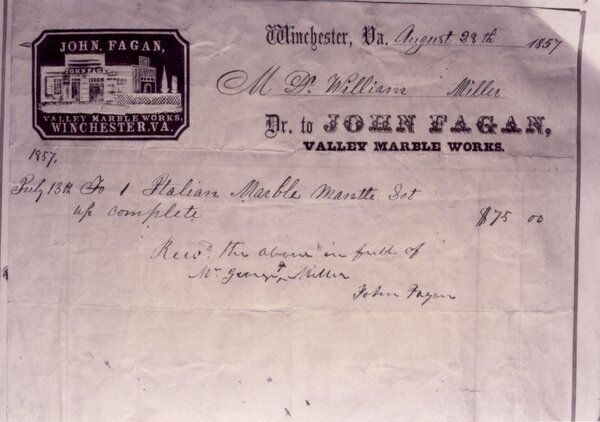 JOHN. FAGAN,
JOHN FAGAN
VALLEY MARBLE WORKS,
WINCHESTER, VA.
Winchester, Va. August 28th 1857
M Dr. William Miller
Dr. to JOHN FAGAN,
VALLEY MARBLE WORKS.
1857.
July 13th To 1 Italian Marble Mantle Set
up complete $75 00
Recd. the above in full of
Mr. George Miller
John Fagan